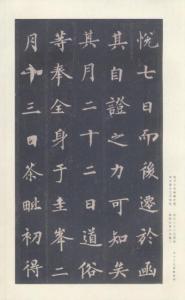 悅七日而後遷於函
其自證之力可知矣
其月二十二日道俗
等奉全身于圭峯二
月十三日茶毗初得